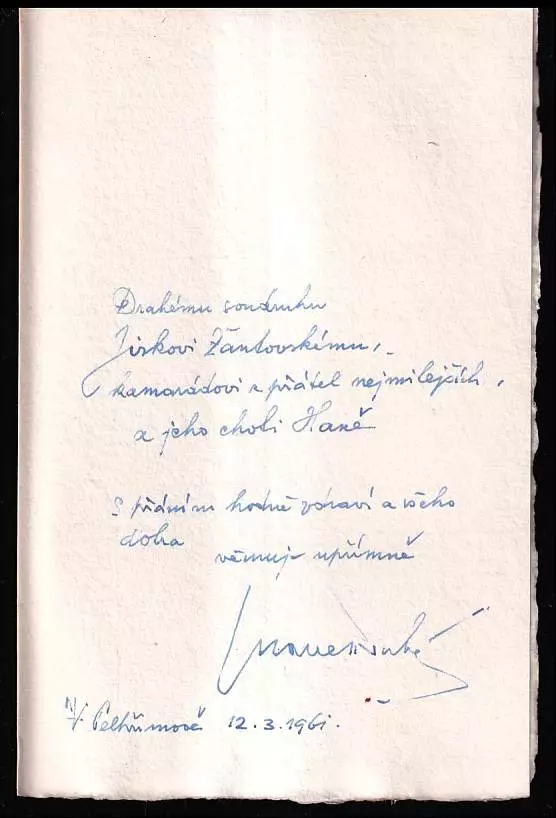 Drahému soudruhu
Jirkovi Žantovskému,
kamarádovi z přátel nejmilejších,
a jeho choti Haně
S přáním hodně zdraví a všeho
dobra
věnuje upřímně
V Pelhřimově 12.3.1961.